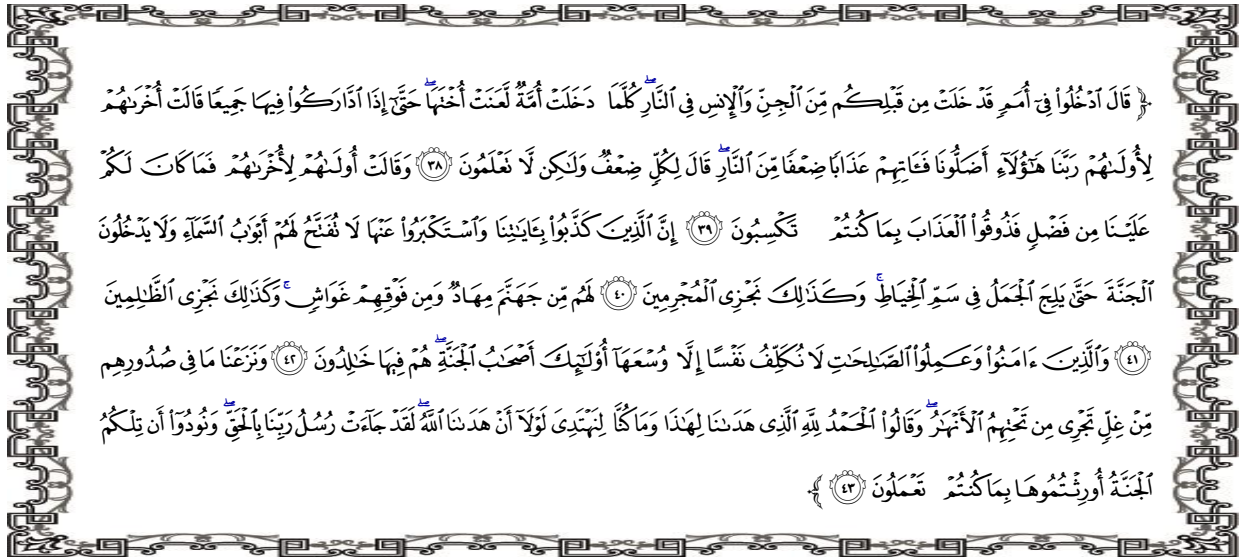 ﴿ قَالَ ٱدۡخُلُواْ فِيٓ أُمَمٖ قَدۡ خَلَتۡ مِن قَبۡلِكُم مِّنَ ٱلۡجِنِّ وَٱلۡإِنسِ فِي ٱلنَّارِۖ كُلَّمَا دَخَلَتۡ أُمَّةٞ لَّعَنَتۡ أُخۡتَهَاۖ حَتَّىٰٓ إِذَا ٱدَّارَكُواْ فِيهَا جَمِيعٗا قَالَتۡ أُخۡرَىٰهُمۡ
لِأُولَىٰهُمۡ رَبَّنَا هَٰٓؤُلَآءِ أَضَلُّونَا فَـَٔاتِهِمۡ عَذَابٗا ضِعۡفٗا مِّنَ ٱلنَّارِۖ قَالَ لِكُلّٖ ضِعۡفٞ وَلَٰكِن لَّا تَعۡلَمُونَ ٣٨ وَقَالَتۡ أُولَىٰهُمۡ لِأُخۡرَىٰهُمۡ فَمَا كَانَ لَكُمۡ
عَلَيۡنَا مِن فَضۡلٖ فَذُوقُواْ ٱلۡعَذَابَ بِمَا كُنتُمۡ تَكۡسِبُونَ ٣٩ إِنَّ ٱلَّذِينَ كَذَّبُواْ بِـَٔايَٰتِنَا وَٱسۡتَكۡبَرُواْ عَنۡهَا لَا تُفَتَّحُ لَهُمۡ أَبۡوَٰبُ ٱلسَّمَآءِ وَلَا يَدۡخُلُونَ
ٱلۡجَنَّةَ حَتَّىٰ يَلِجَ ٱلۡجَمَلُ فِي سَمِّ ٱلۡخِيَاطِۚ وَكَذَٰلِكَ نَجۡزِي ٱلۡمُجۡرِمِينَ ٤٠ لَهُم مِّن جَهَنَّمَ مِهَادٞ وَمِن فَوۡقِهِمۡ غَوَاشٖۚ وَكَذَٰلِكَ نَجۡزِي ٱلظَّٰلِمِينَ
٤١ وَٱلَّذِينَ ءَامَنُواْ وَعَمِلُواْ ٱلصَّٰلِحَٰتِ لَا نُكَلِّفُ نَفۡسًا إِلَّا وُسۡعَهَآ أُوْلَٰٓئِكَ أَصۡحَٰبُ ٱلۡجَنَّةِۖ هُمۡ فِيهَا خَٰلِدُونَ ٤٢ وَنَزَعۡنَا مَا فِي صُدُورِهِم
مِّنۡ غِلّٖ تَجۡرِي مِن تَحۡتِهِمُ ٱلۡأَنۡهَٰرُۖ وَقَالُواْ ٱلۡحَمۡدُ لِلَّهِ ٱلَّذِي هَدَىٰنَا لِهَٰذَا وَمَا كُنَّا لِنَهۡتَدِيَ لَوۡلَآ أَنۡ هَدَىٰنَا ٱللَّهُۖ لَقَدۡ جَآءَتۡ رُسُلُ رَبِّنَا بِٱلۡحَقِّۖ وَنُودُوٓاْ أَن تِلۡكُمُ
ٱلۡجَنَّةُ أُورِثۡتُمُوهَا بِمَا كُنتُمۡ تَعۡمَلُونَ ٤٣ ﴾